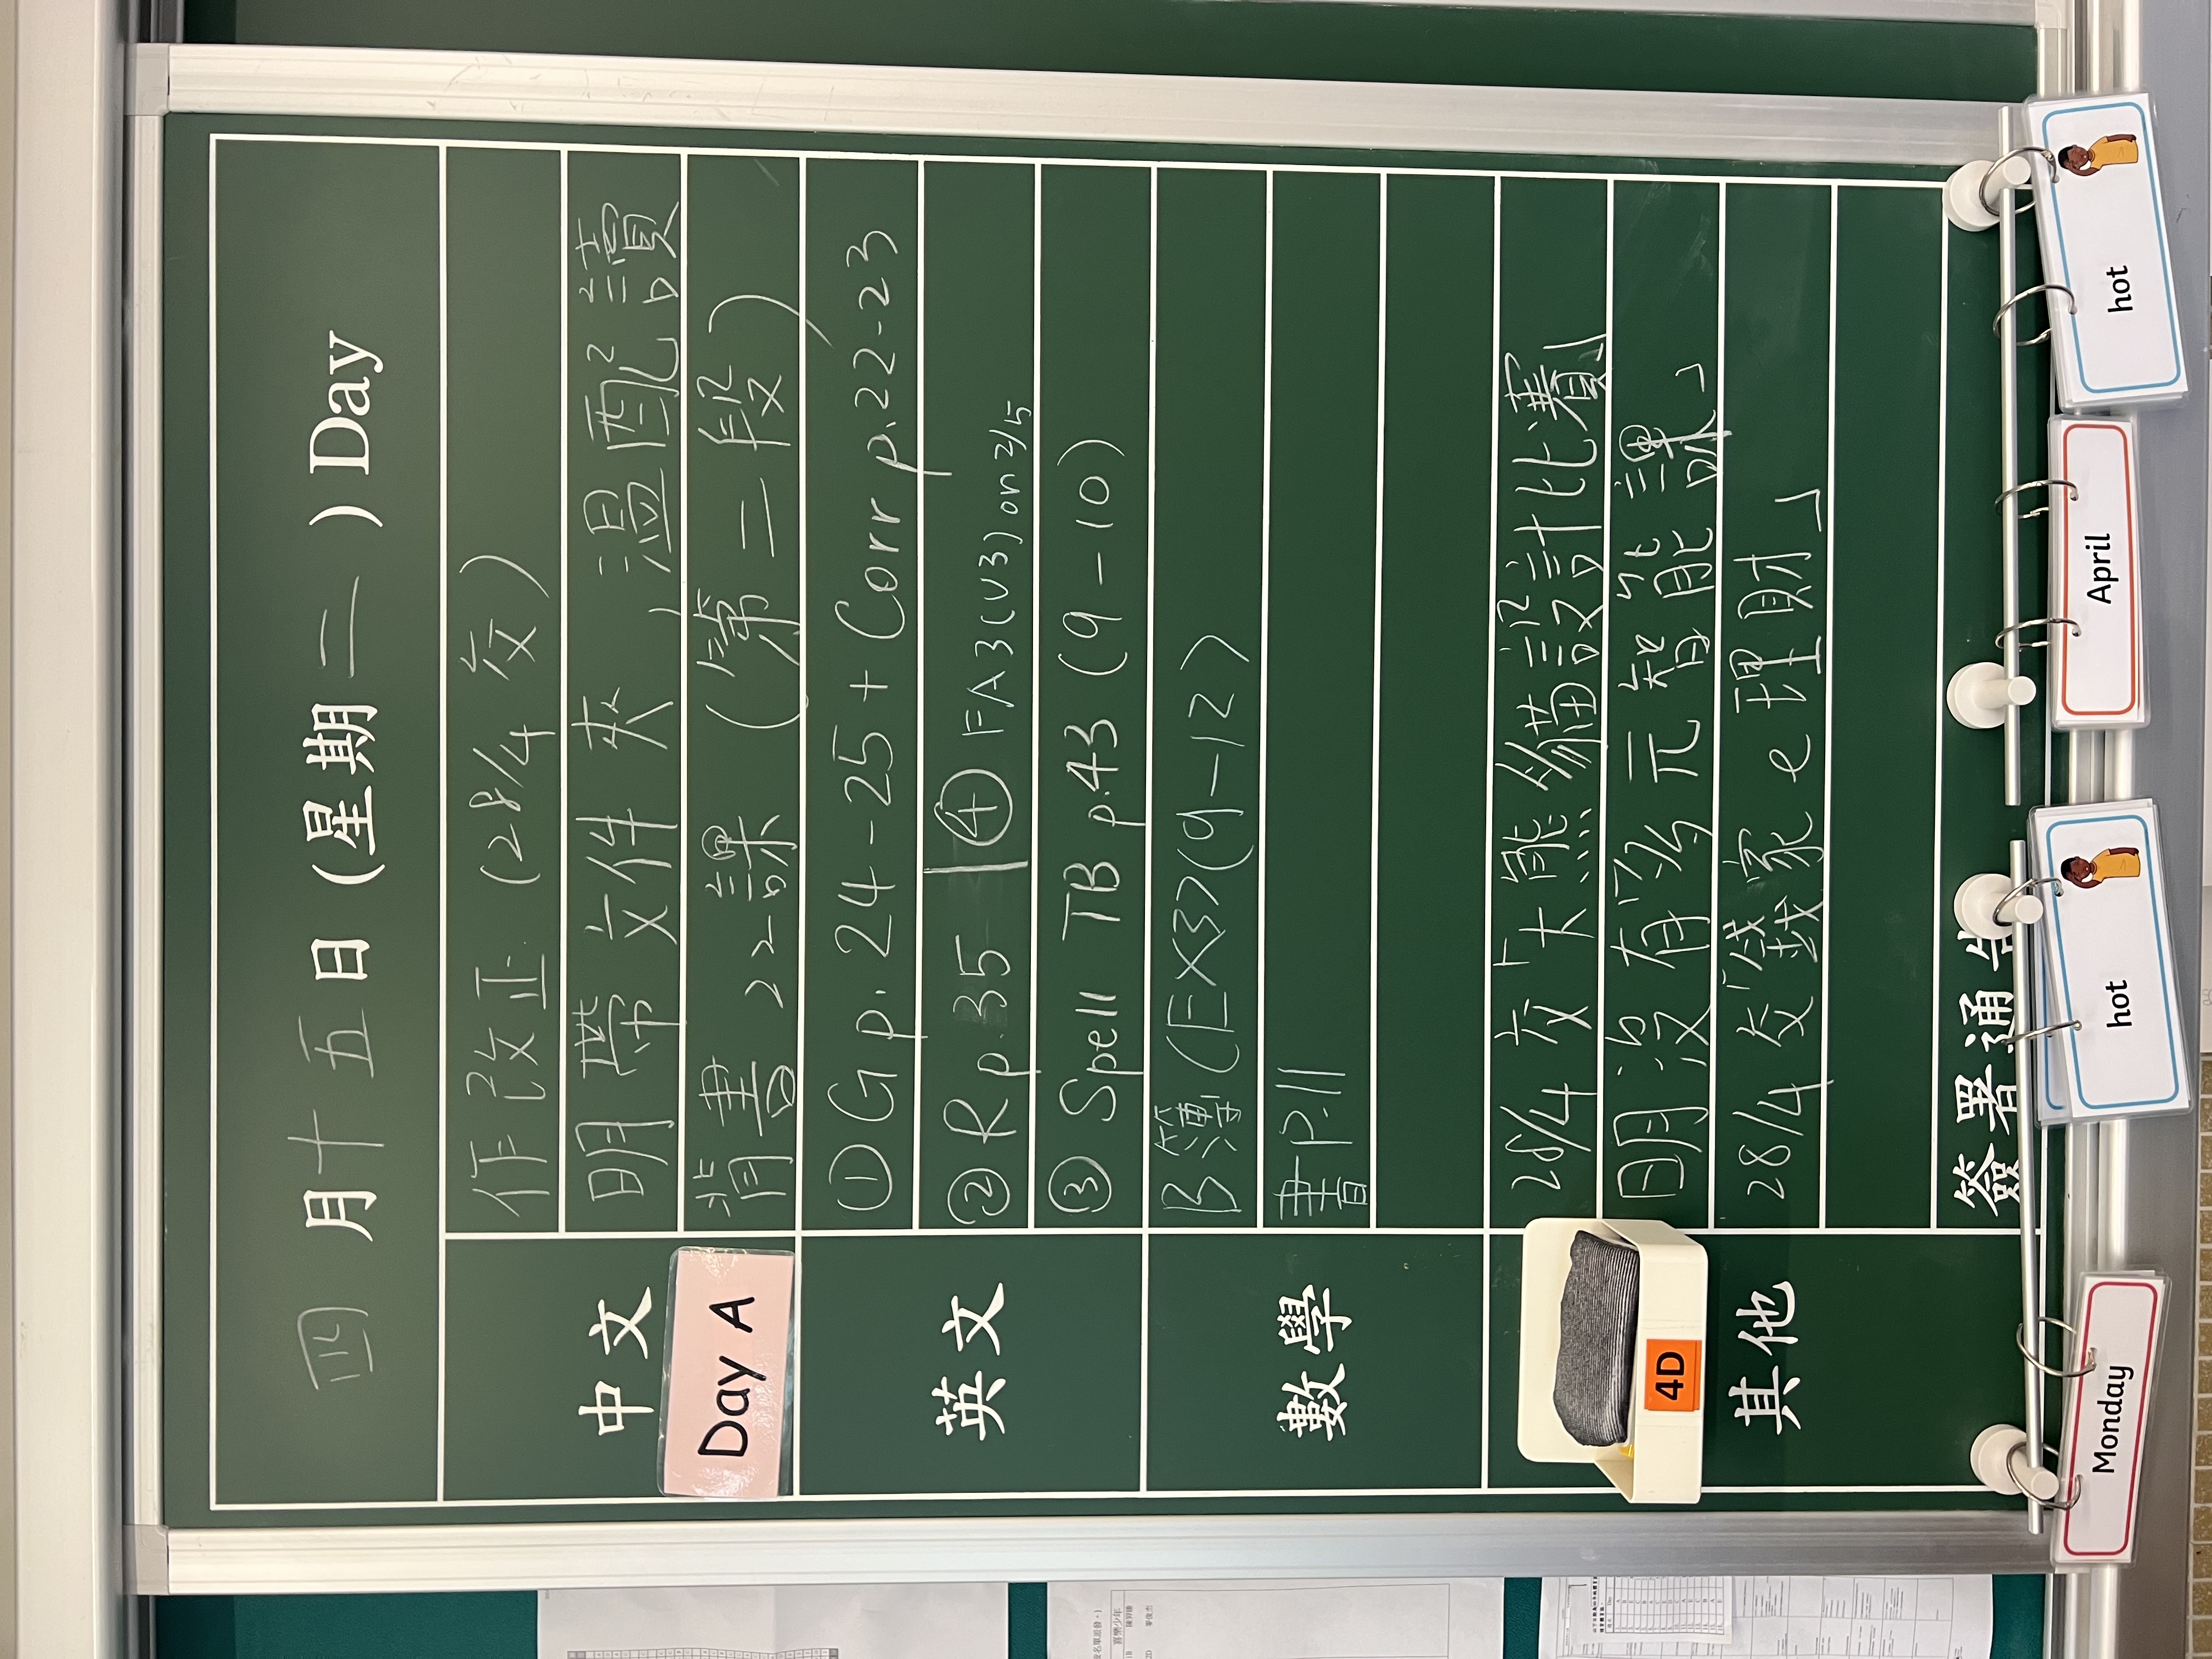 四月十五日(星期二)Day
中文
作改正 (28/4 交)
明帶文件夾,溫默讀
背書 22課 (第二段)
Day A
英文
① G p. 24-25 + Corr p.22-23
② R p. 35 | ④ FA3(U3) on 2/5
③ Spell TB p.43 (9-10)
數學
B簿 (EX37)(9-12)
書 P.11
其他
28/4 交「大熊貓設計比賽」
明沒有多元智能課」
28/4 交「錢家e理財」
簽署通告
4D
Monday
hot
April
hot